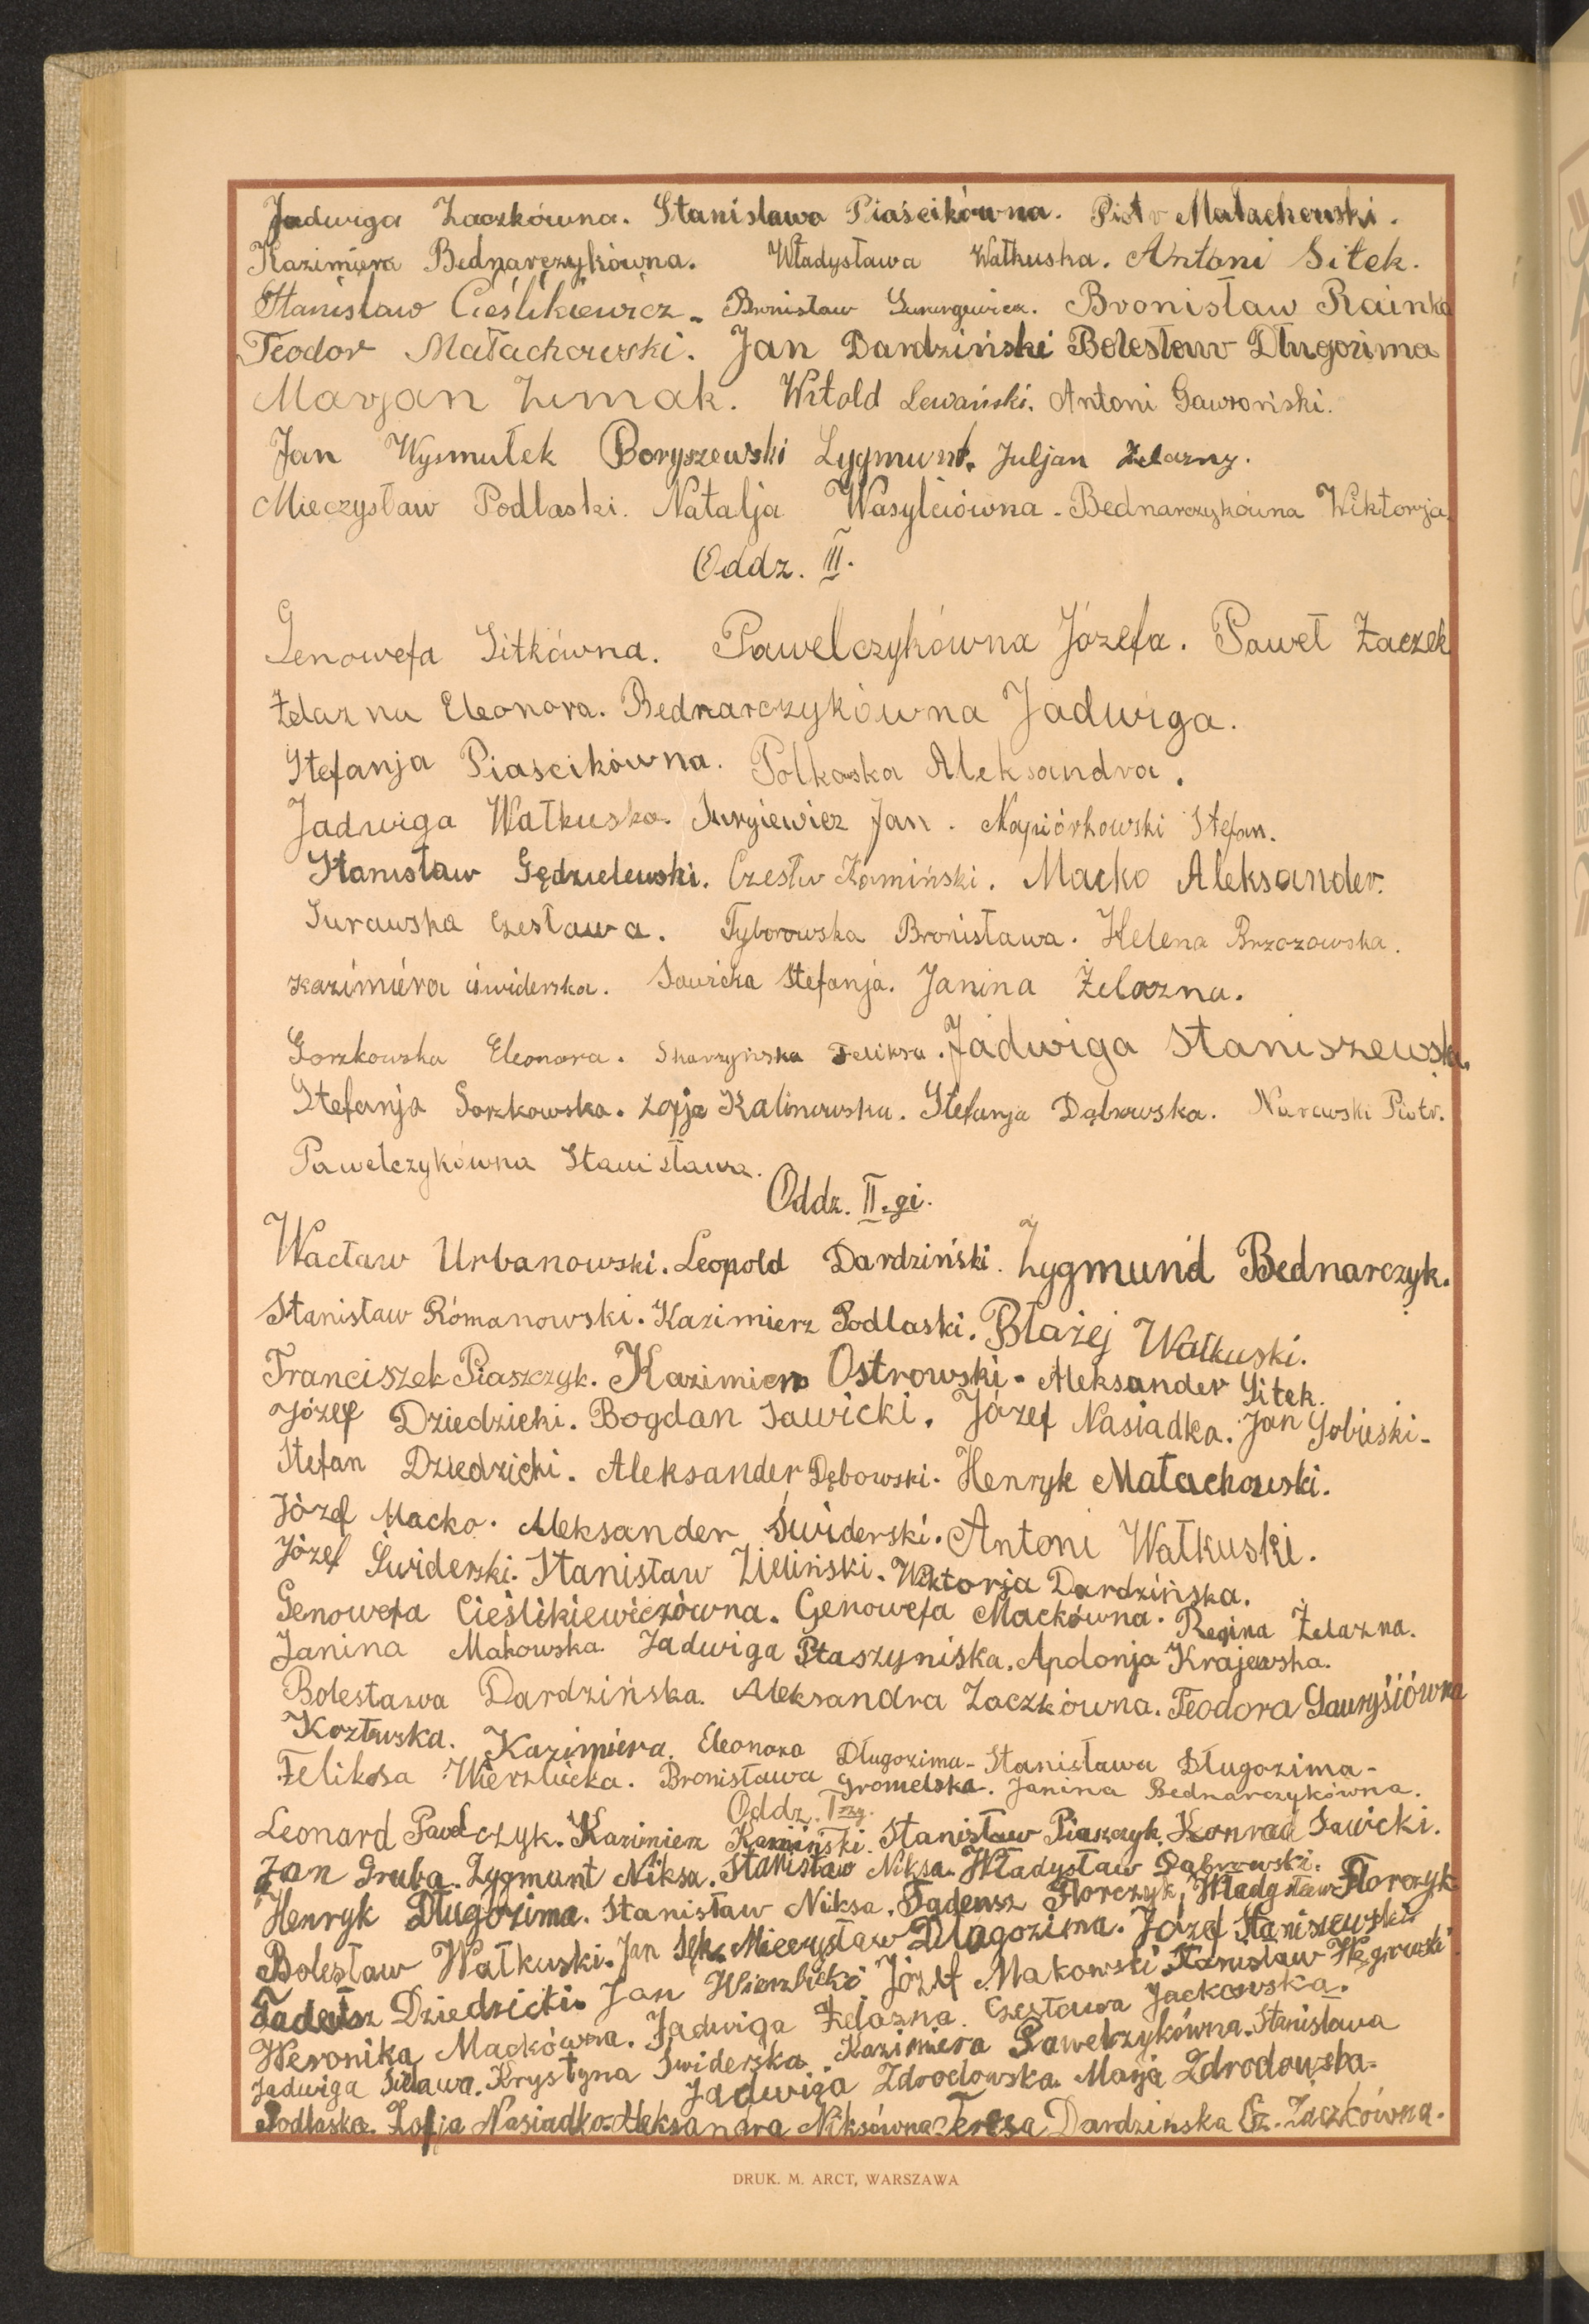 Jadwiga Żaczkówna. Stanisława Piaścikówna. Piotr Małachowski.
Kazimiera Bednarczykówna. Władysława Wałkuska. Antoni Sitek.
Stanisław Cieślikiewicz. Bronisław Bronisław Rainko
Teodor Małachowski. Jan Dardziński Bolesław Długozima
Marjan Zimak. Witold Lewański. Antoni Gawroński.
Jan Wysmułek Boryszewski Zygmunt. Juljan Żelazny.
Mieczysław Podlaski. Natalja Wasylciówna. Bednarczykówna Wiktorja.
Oddz. III.
Genowefa Sitkówna. Pawelczykówna Józefa. Paweł Żaczek
Żelazna Eleonora. Bednarczykówna Jadwiga.
Stefanja Piascikówna. Polkoska Aleksandra.
Jadwiga Wałkuska. Jurgiewicz Jan. Napiórkowski Stefan.
Stanisław Gędzielewski. Czesłw Kamiński. Macko Aleksander.
Surawska Czesława. Tyborowska Bronisława. Helena Brzozowska.
Kazimiéra świderska. Sawicka Stefanja. Janina Żelazna.
Gorzkowska Eleonora. Skarzyńska Feliksa. Jadwiga Staniszewska.
Stefanja Gorzkowska. Zofja Kalinowska. Stefanja Dąbrowska. Narewski Piotr.
Pawelczykówna Stanisława.
Oddz. II-gi.
Wacław Urbanowski. Leopold Dardziński. Zygmund Bednarczyk.
Stanisław Romanowski. Kazimierz Podlaski. Błażej Wałkuski.
Franciszek Piaszczyk. Kazimierz Ostrowski. Aleksander Sitek.
Józef Dziedzicki. Bogdan Sawicki. Józef Nasiadka. Jan Sobieski.
Stefan Dziedzicki. Aleksander Dębowski. Henryk Małachowski.
Józef Macko. Aleksander Świderski. Antoni Wałkuski.
Józef Świderski. Stanisław Zieliński. Wiktorja Dardzińska.
Genowefa Cieślikiewiczówna. Genowefa Mackówna. Regina Żelazna.
Janina Makowska. Jadwiga Ptaszyniska. Apolonja Krajewska.
Bolesława Dardzińska. Aleksandra Żaczkówna. Teodora Gauryśiówna
Kozłowska. Kazimiera. Eleonora Długozima. Stanisława Długozima.
Feliksa Wierzbicka. Bronisława Gromelska. Janina Bednarczykówna.
Oddz. I-szy.
Leonard Pawelczyk. Kazimierz Kamiński. Stanisław Piaszczyk. Konrad Sawicki.
Jan Gruba. Zygmunt Niksa. Stanisław Niksa. Władysław Dąbrowski.
Henryk Długozima. Stanisław Niksa. Tadeusz Florczyk, Władysław Florczyk
Bolesław Wałkuski. Jan Sęk. Mieczysław Dlugozima. Józef Staniszewski
Tadeusz Dziedzicki. Jan Wierzbicki Józef Makowski Stanisław Węgrowski
Weronika Mackówna. Jadwiga Żelazna. Czesława Jackowska.
Jadwiga Krystyna Swiderska. Kazimiera Pawelczykówna. Stanisława
Jadwiga Zdrodowska. Marja Zdrodowska.
Podlaska. Zofja Nasiadko. Aleksandra Niksówna Teresa Dardzinska Cz. Żaczkówna.
DRUK. M. ARCT, WARSZAWA